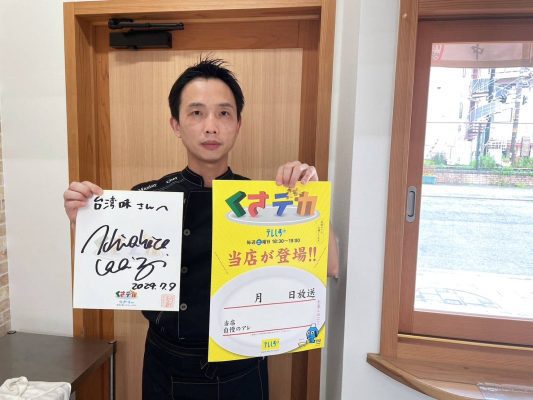 台湾味さんへ
2024.7.9
くさデカ
くさデカ
テレしず
毎週土曜日 18:30~19:00
当店が登場!!
月 日放送
当店
自慢のアレ
テレしず